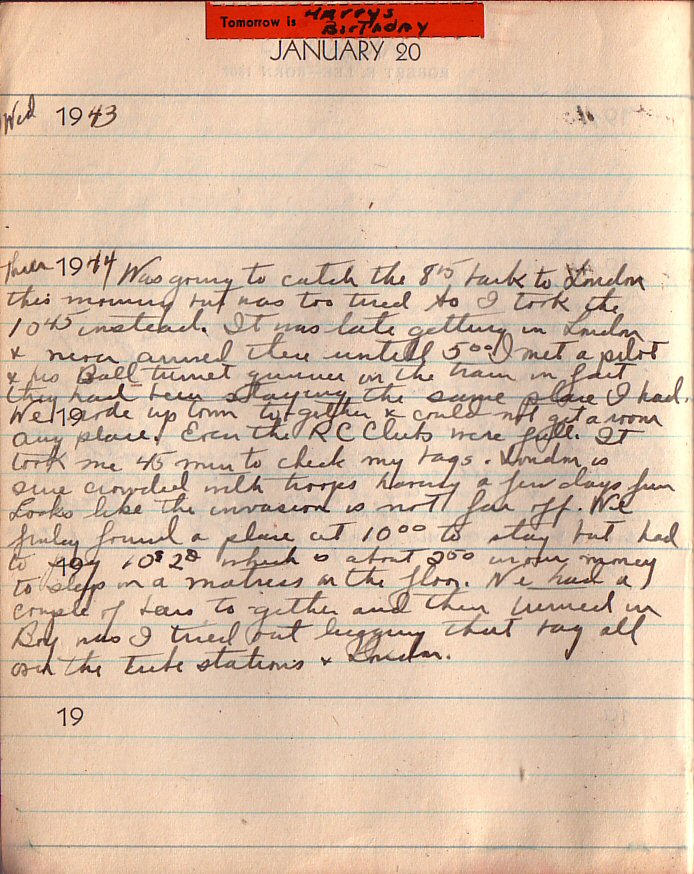 Tomorrow is Harrys
Birthday
JANUARY 20
Wed 1943
Thur 1944 Was going to catch the 8 15 back to London
this morning but was too tired so I took the
10 45 instead. It was late getting in London
& never arrived there untill 5 00 I met a pilot
& his Ball turret gunner on the train in fact
they had been staying the same place I had.
We rode up town to-gether & could not get a room
19
any place. Even the RC Clubs were full. It
took me 45 min to check my bags. London is
sure crowded with troops having a few days fun
Looks like the invasion is not far off. We
finley found a place at 10 00 to stay but had
to pay 10s 2d which is about 2 00 in our money
19
to sleep on a matress on the floor. We had a
couple of beers to-gether and then turned in
Boy was I tired out lugging that bag all
over the tube stations & London.
19